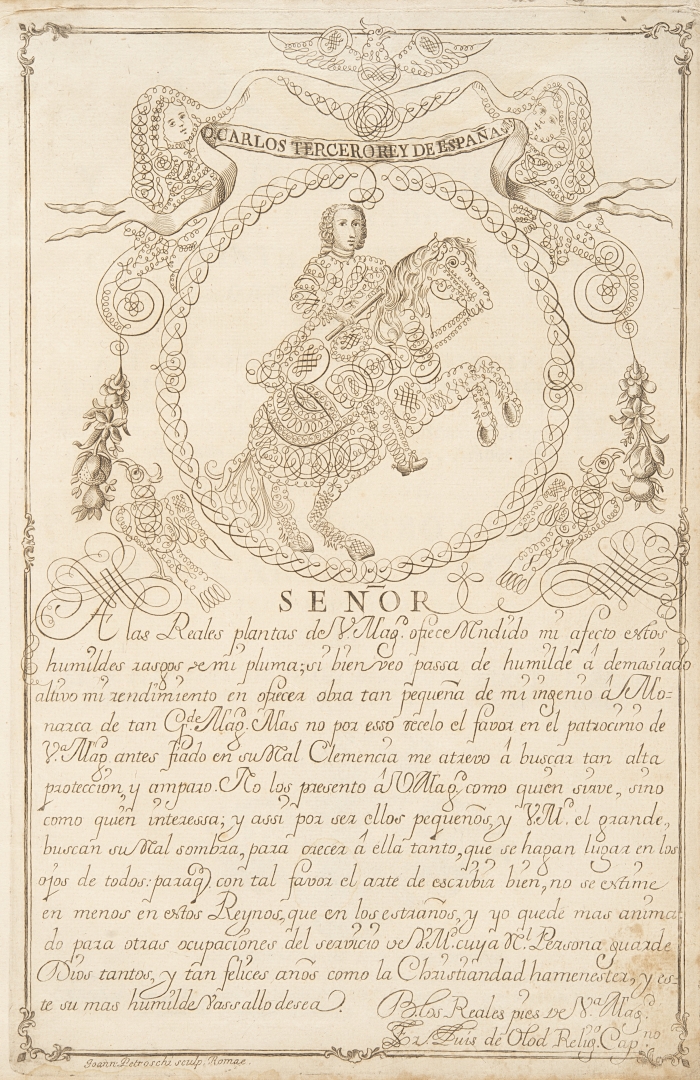 D. CARLOS TERCERO REY DE ESPAÑA.
SEÑOR
A las Reales plantas de V. Mag. ofrece Rendido mi afecto estos
humildes rasgos de mi pluma; si bien veo passa de humilde á demasiado
altivo mi rendimiento en ofrecer obra tan pequeña de mi ingenio á Mo-
narca de tan Gr.de Mag. Mas no por esso recelo el favor en el patrocinio de
V.ª Mag. antes fiado en su Real Clemencia me atrevo á buscar tan alta
proteccion, y amparo. No los presento á V Mag. como quien sirve, sino
como quien interessa; y assi por ser ellos pequeños, y V. M. el grande,
buscan su Real sombra, para crecer á ella tanto, que se hagan lugar en los
ojos de todos: paraq) con tal favor el arte de escribir bien, no se estime
en menos en estos Reynos, que en los estraños, y yo quede mas anima
do para otras ocupaciones del servicio de V. M. cuya R.l Persona guarde
Dios tantos, y tan felices años como la Christiandad hamenester, y es-
te su mas humilde Vassallo desea.
B. los Reales pies de V.ª Mag.
Fr. Luis de Olod Relig.º Cap.no
Joann. Petroschi sculp. Romae.